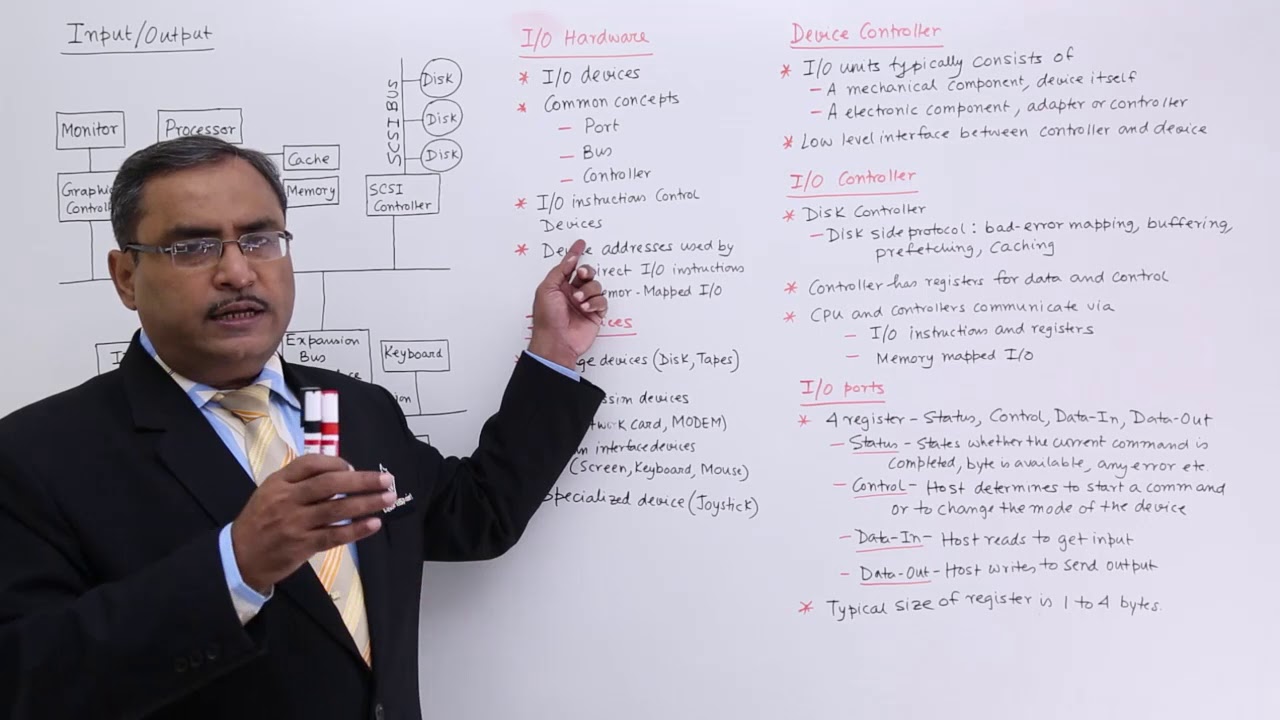 Input/Output
Monitor
Processor
Cache
Memory
Graphic
Controll
SCSI BUS
Disk
Disk
Disk
SCSI
Controller
Expansion
Bus
Keyboard
I/O Hardware
* I/O devices
* Common concepts
– Port
– Bus
– Controller
* I/O instructions Control
Devices
* Device addresses used by
Direct I/O instructions
Memor-Mapped I/O
devices (Disk, Tapes)
devices
card, MODEM)
interface devices
(Screen, Keyboard, Mouse)
Specialized device (Joystick)
Device Controller
* I/O units typically consists of
– A mechanical component, device itself
– A electronic component, adapter or controller
* Low level interface between controller and device
I/O Controller
* Disk Controller
– Disk side protocol : bad-error mapping, buffering,
prefetching, Caching
* Controller has registers for data and control
* CPU and controllers communicate via
– I/O instructions and registers
– Memory mapped I/O
I/O ports
* 4 register – Status, Control, Data-In, Data-Out
– Status – States whether the current command is
completed, byte is available, any error etc.
– Control – Host determines to start a command
or to change the mode of the device
– Data-In – Host reads to get input
– Data-Out – Host writes to send output
* Typical size of register is 1 to 4 bytes.